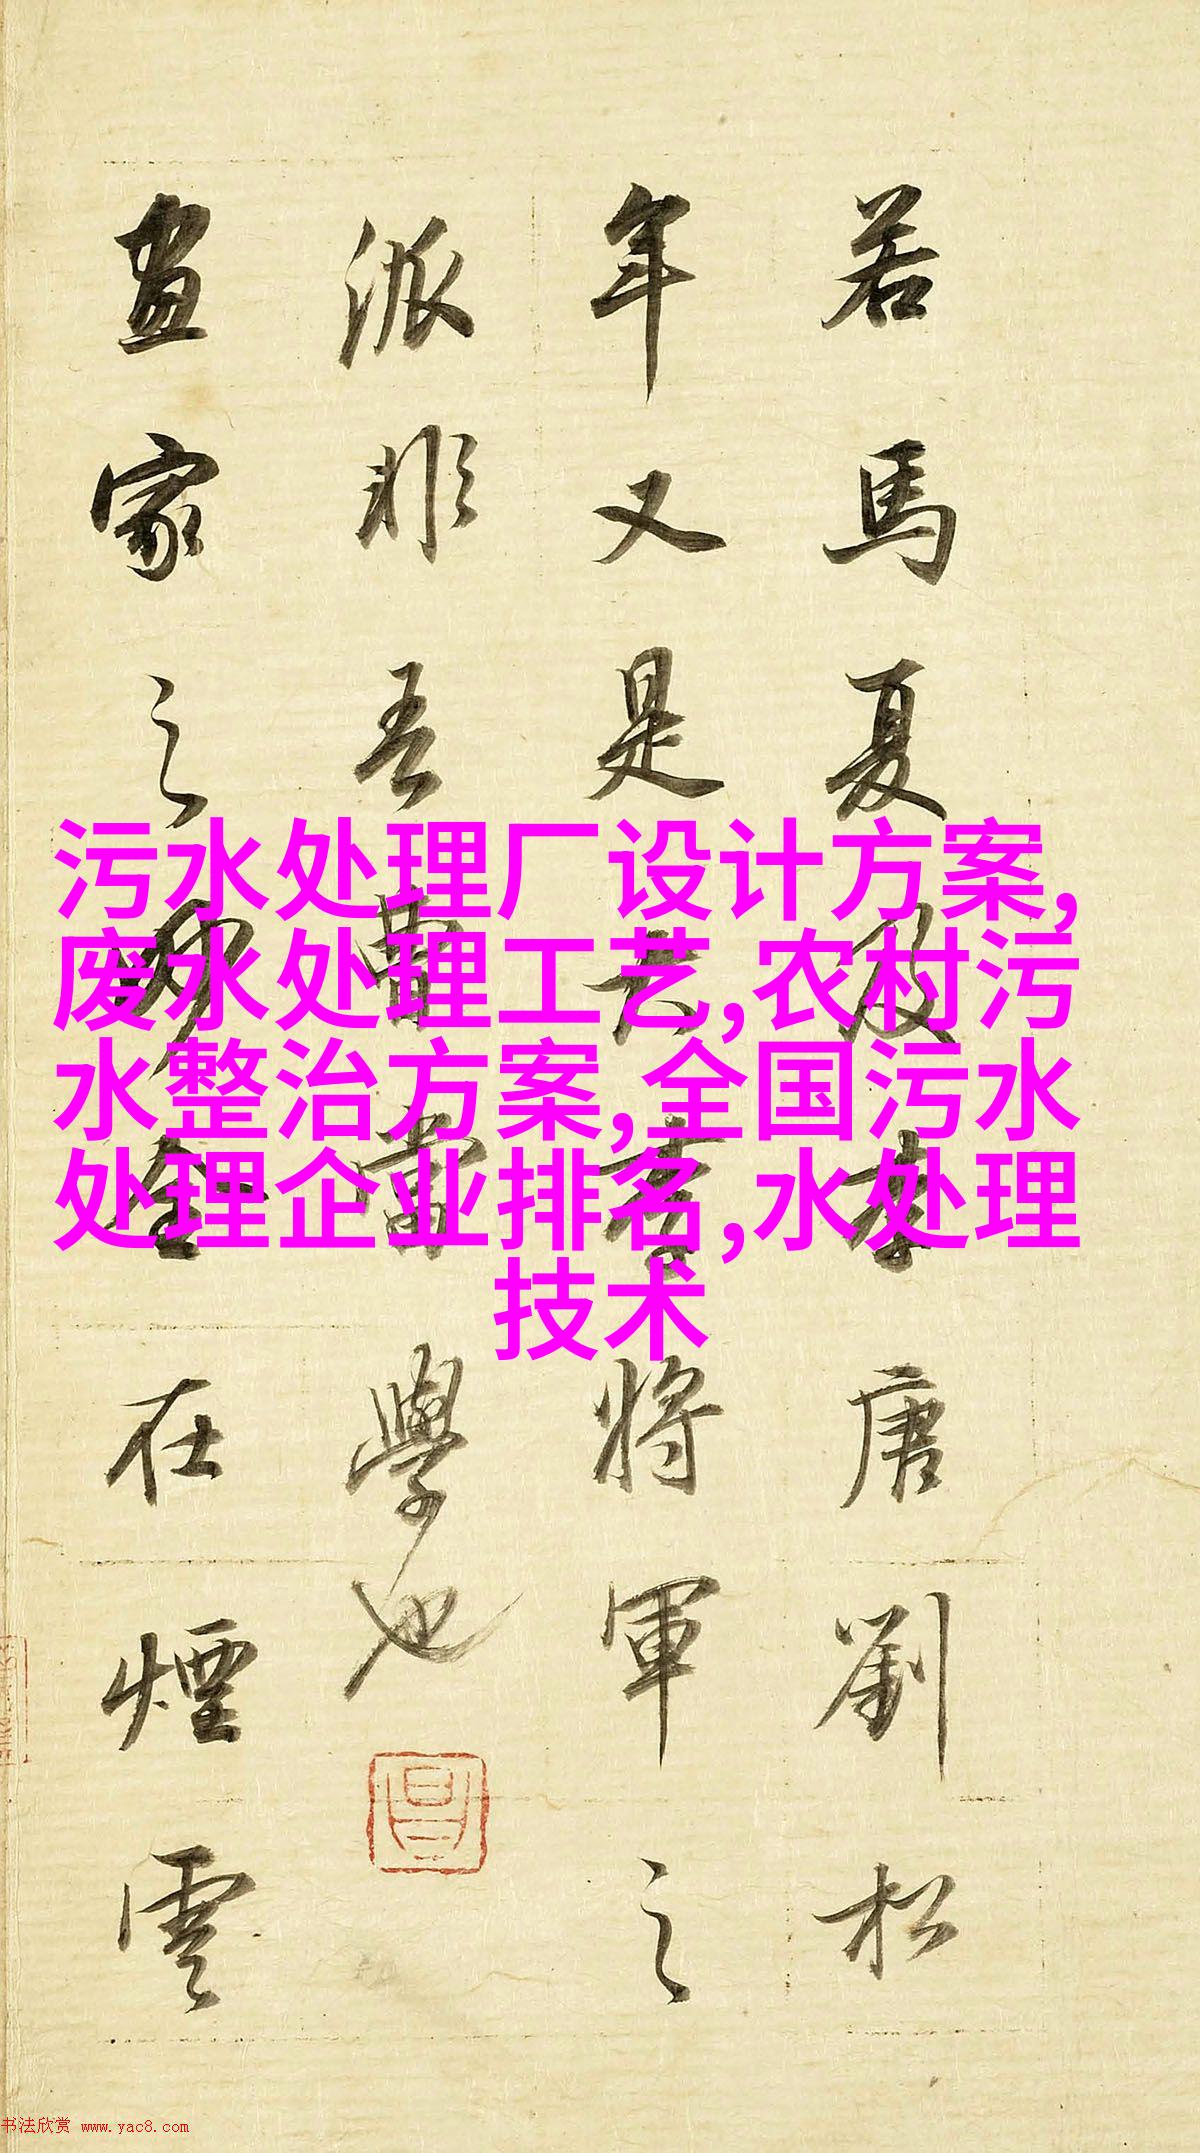 若馬夏及李唐劉松
年又是大李將軍之
派非吾曹當學也
昌
畫家之妙全在煙雲
污水处理厂设计方案,
废水处理工艺,农村污
水整治方案,全国污水
处理企业排名,水处理
技术
书法欣赏 www.yac8.com